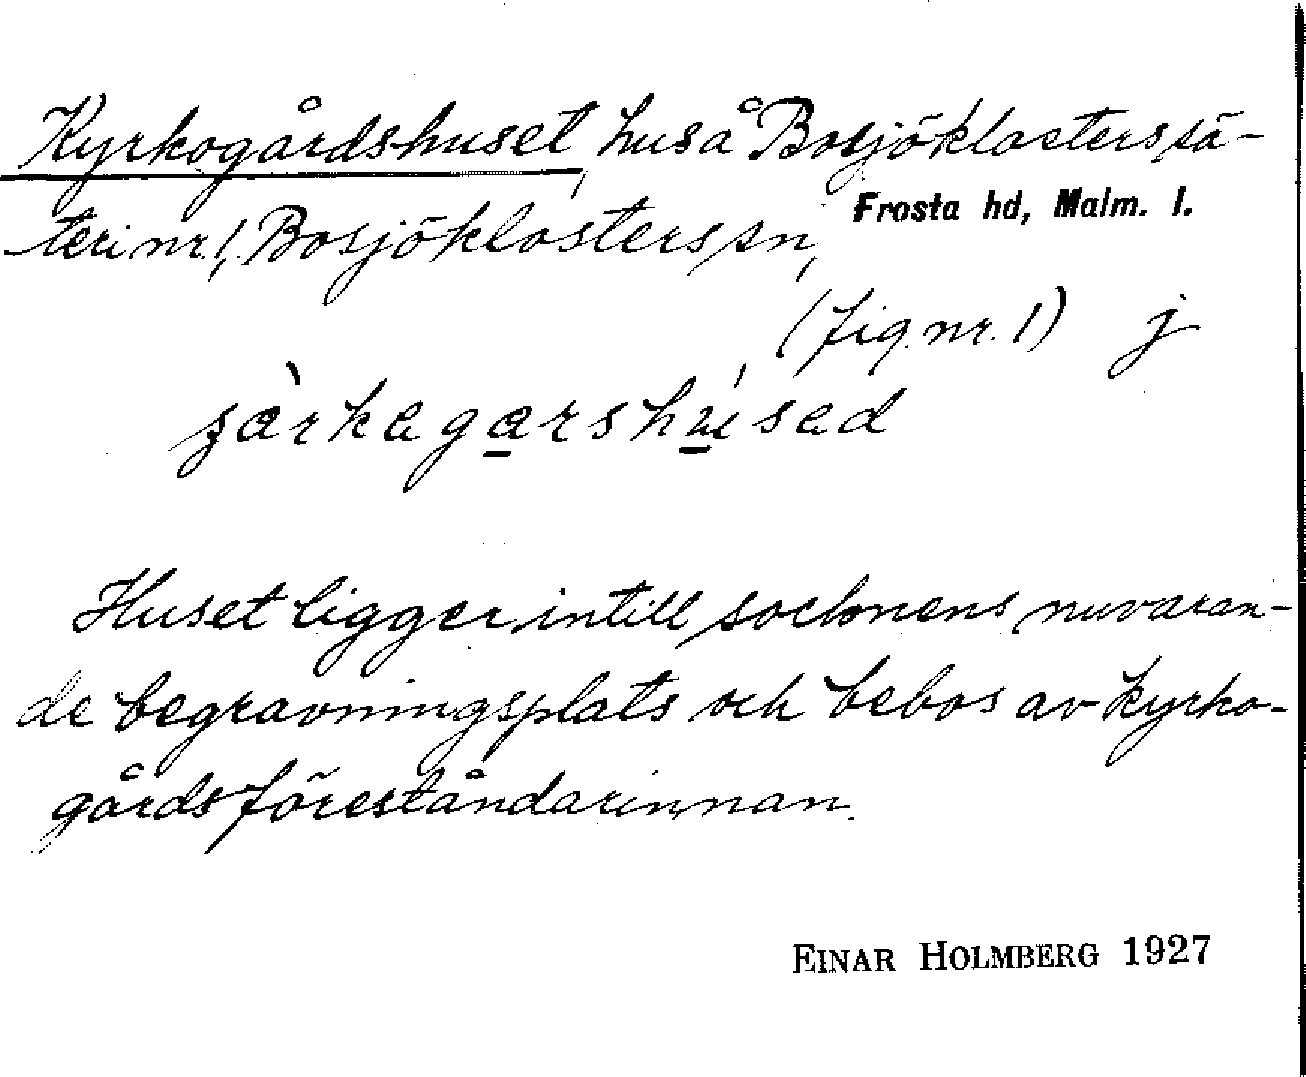 Kyrkogårdshuset, hus å Bosjöklosters sä-
teri nr 1, Bosjöklosters sn,
Frosta hd, Malm. l.
(fig. nr. 1) j
Huset ligger intill socknens nuvaran-
de begravningsplats och bebos av kyrko-
gårdsföreståndarinnan.
EINAR HOLMBERG 1927